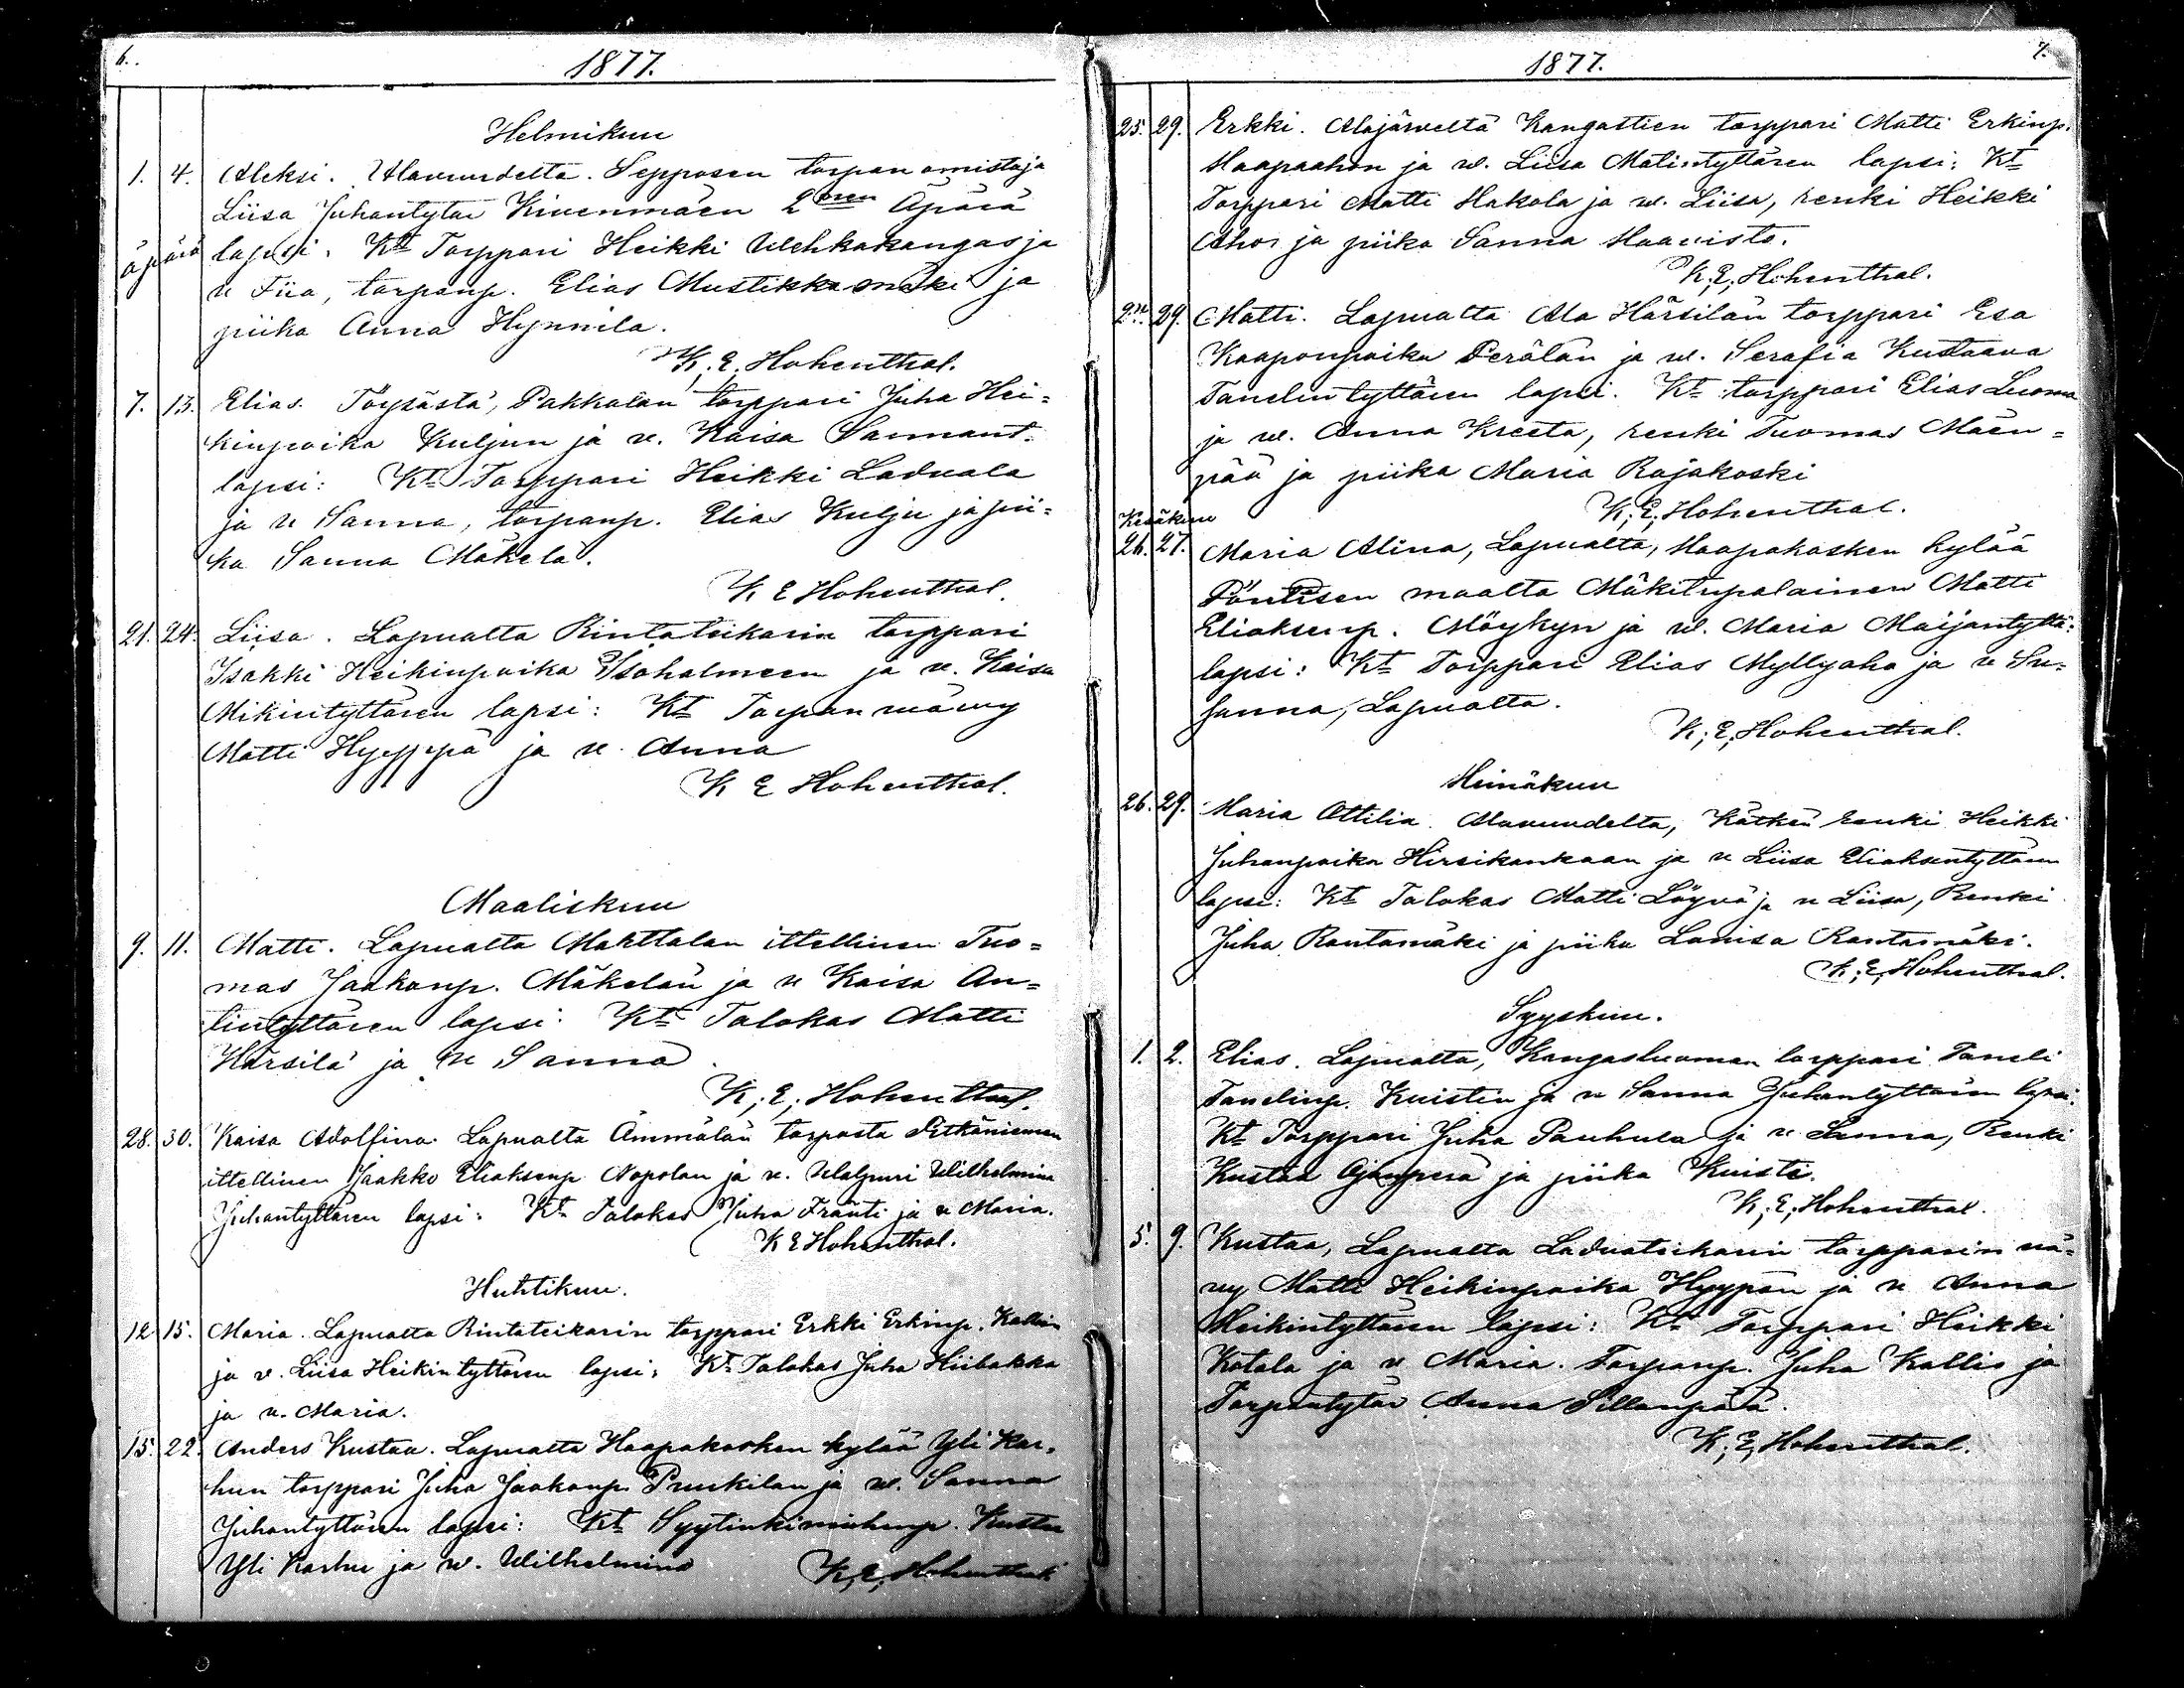 6.
1877.
Helmikuu
1. 4. Aleksi. Alavuudelta. Sepposen torpan omistaja
Liisa Juhantytär Kivenmäen 2sen Äpärä
äpärä lapsi. Kt Torppari Heikki Wehkakangas ja
v Fiia, torpanp. Elias Mustikkamäki ja
piika Anna Hynnilä.
K. E. Hohenthal.
7. 13. Elias. Töysästä, Pakkalan torppari Juha Hei=
kinpoika Kuljun ja v. Kaisa Sammant.
lapsi: Kt Torppari Heikki Laduala
ja v Sanna, torpanp. Elias Kulju ja pii=
ka Sanna Mäkelä.
K E Hohenthal.
21. 24. Liisa. Lapualta Rintateikarin torppari
Isakki Heikinpoika Isoholmeen ja v. Kaisa
Mikintyttären lapsi: Kt Torpan wäwy
Matti Hyyppä ja v. Anna
K E Hohenthal.
Maaliskuu
9. 11. Matti. Lapualta Mahttalan ittellinen Tuo=
mas Jaakonp. Mäkelän ja v Kaisa An=
tintyttären lapsi: Kt Talokas Matti
Härsilä ja v Sanna.
K. E. Hohenthal.
28. 30. Kaisa Adolfina. Lapualta Ämmälän torpasta Pitkäniemen
ittellinen Jaakko Eliaksenp Nopolan ja v. Walpuri Wilhelmina
Juhantyttären lapsi: Kt Talokas Juha Fränti ja v Maria.
K E Hohenthal.
Huhtikuu.
12 15. Maria. Lapualta Rintateikarin torppari Erkki Erkinp. Kallion
ja v. Liisa Heikintyttären lapsi: Kt Talokas Juha Hiibakka
ja v. Maria.
15. 22. Anders Kustaa. Lapualta Haapakosken kylää Yli Kar=
hun torppari Juha Jaakonp. Pruukilan ja w. Sanna
Juhantyttären lapsi: Kt Syytinkimiehenp. Kustaa
Yli Karhu ja w. Wilhelmina K, E, Hohenthal
7.
1877.
25. 29. Erkki. Alajärveltä Kangastien torppari Matti Erkinp.
Haapaahon ja w. Liisa Matintyttären lapsi: Kt
Torppari Matti Hakola ja w. Liisa, renki Heikki
Aho ja piika Sanna Haavisto.
K. E. Hohenthal.
29. Matti. Lapualta Ala Härsilän torppari Esa
Kaaponpoika Perälän ja w. Serafia Kustaava
Tanelintyttären lapsi. Kt torppari Elias Luoma
ja w. Anna Kreeta, renki Tuomas Mäen=
pää ja piika Maria Rajakoski
K. E. Hohenthal.
Kesäkuu
26. 27. Maria Alina, Lapualta, Haapakosken kylää
Pöntisen maalta Mäkitupalainen Matti
Eliaksenp. Möykyn ja w. Maria Maijantyttä:
lapsi: Kt Torppari Elias Myllyaho ja v Su=
sanna, Lapualta.
K. E. Hohenthal.
Heinäkuu
26. 29. Maria Ottilia. Alavuudelta, Kätkän renki Heikki
Juhanpoika Hirsikankaan ja v Liisa Eliaksentyttären
lapsi: Kt Talokas Matti Löyvä ja v Liisa, Renki
Juha Rantamäki ja piika Lovisa Rantamäki.
K. E. Hohenthal.
Syyskuu.
1. 2. Elias. Lapualta, Kangasluoman torppari Taneli
Tanelinp. Kuistin ja v Sanna Juhantyttären lapsi.
Kt Torppari Juha Pauhula ja v Sanna, Renki
Kustaa Ojanperä ja piika Kuisti.
K. E. Hohenthal.
5. 9. Kustaa, Lapualta Laduateikarin torpparin vä=
vy Matti Heikinpoika Hyypän ja v Anna
Heikintyttären lapsi: Kt Torppari Heikki
Kotala ja v Maria. Torpanp. Juha Kallio ja
Torpantytär Anna Sillanpää.
K. E. Hohenthal.